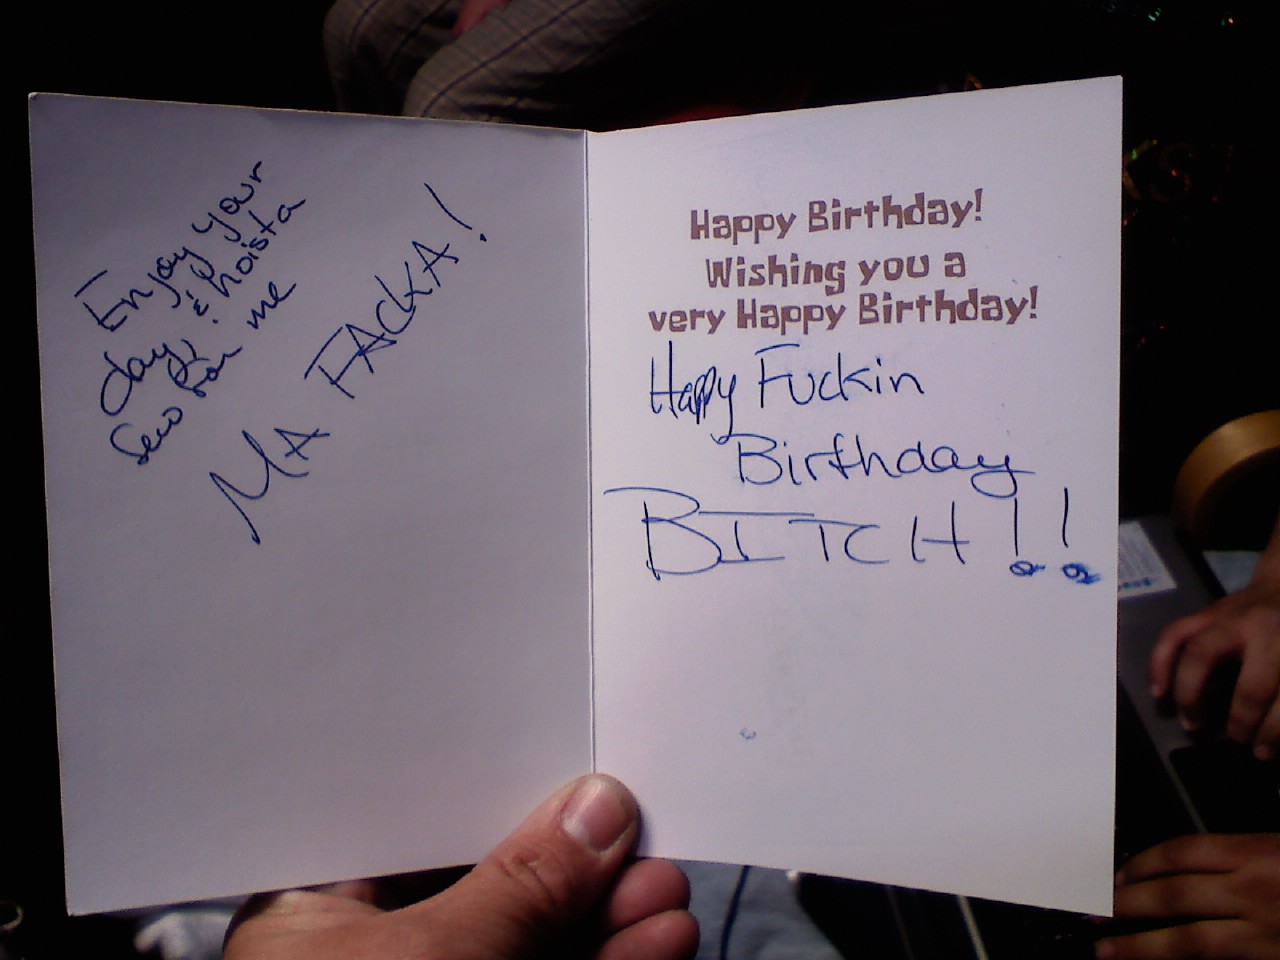 Enjoy your
day, & hoista
few for me
MA FACKA!
Happy Birthday!
Wishing you a
very Happy Birthday!
Happy Fuckin
Birthday
BITCH!!